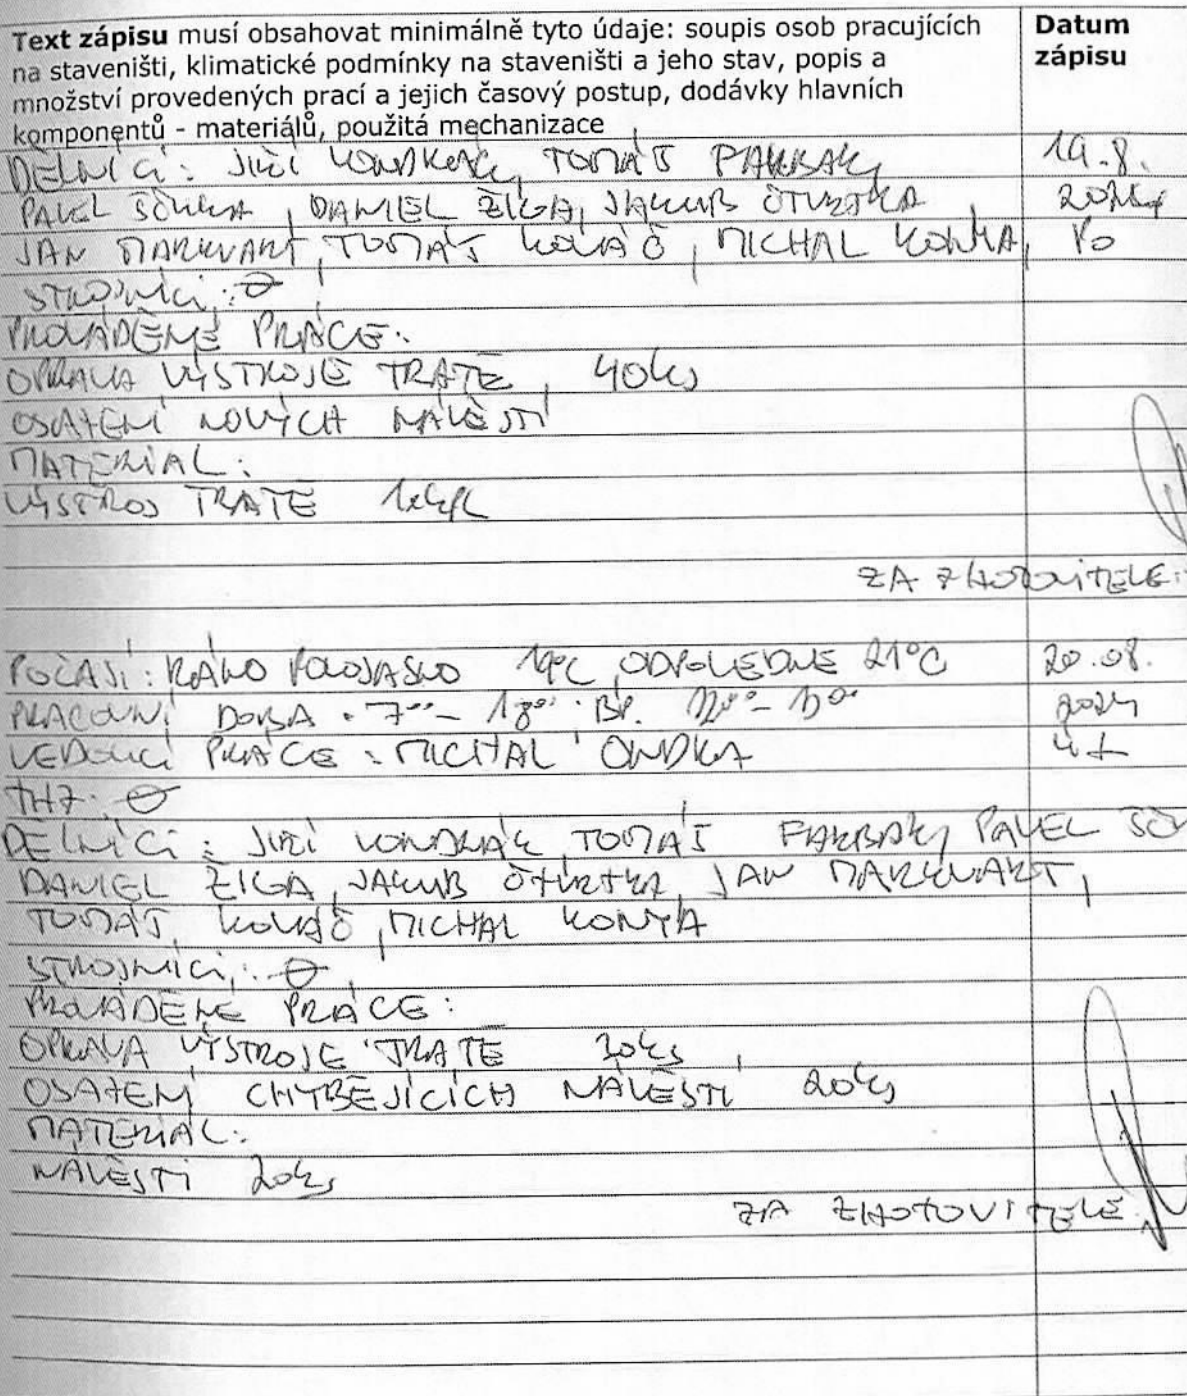 Text zápisu musí obsahovat minimálně tyto údaje: soupis osob pracujících
na staveništi, klimatické podmínky na staveništi a jeho stav, popis a
množství provedených prací a jejich časový postup, dodávky hlavních
komponentů - materiálů, použitá mechanizace
Datum
zápisu
DĚLNÍCI: JIŘÍ KONDRÁK, TOMÁŠ 19.8.
PAVEL, DANIEL ŽIGA, JAKUB ČTVRTKA, 2024
JAN MARKVART, TOMÁŠ KOVÁČ, MICHAL KONYA, PO
STROJNÍCI: Ø
PROVÁDĚNÉ PRÁCE:
OPRAVA VÝSTROJE TRATĚ, 40ks
OSAZENÍ NOVÝCH NÁVĚSTÍ
MATERIÁL:
VÝSTROJ TRATĚ
ZA ZHOTOVITELE:
POČASÍ: RÁNO POLOJASNO °C, ODPOLEDNE 21°C 20.08.
PRACOVNÍ DOBA: 7°°- 18°° BP. 12°°- 13°° 2024
VEDOUCÍ PRÁCE: MICHAL ONDKA ÚT
THZ: Ø
DĚLNÍCI: JIŘÍ KONDRÁK, TOMÁŠ FARBAK, PAVEL
DANIEL ŽIGA, JAKUB ČTVRTKA, JAN MARKVART,
TOMÁŠ KOVÁČ, MICHAL KONYA
STROJNÍCI: Ø
PROVÁDĚNÉ PRÁCE:
OPRAVA VÝSTROJE TRATĚ 20ks
OSAZENÍ CHYBĚJÍCÍCH NÁVĚSTÍ 20ks
MATERIÁL:
NÁVĚSTI 20ks
ZA ZHOTOVITELE